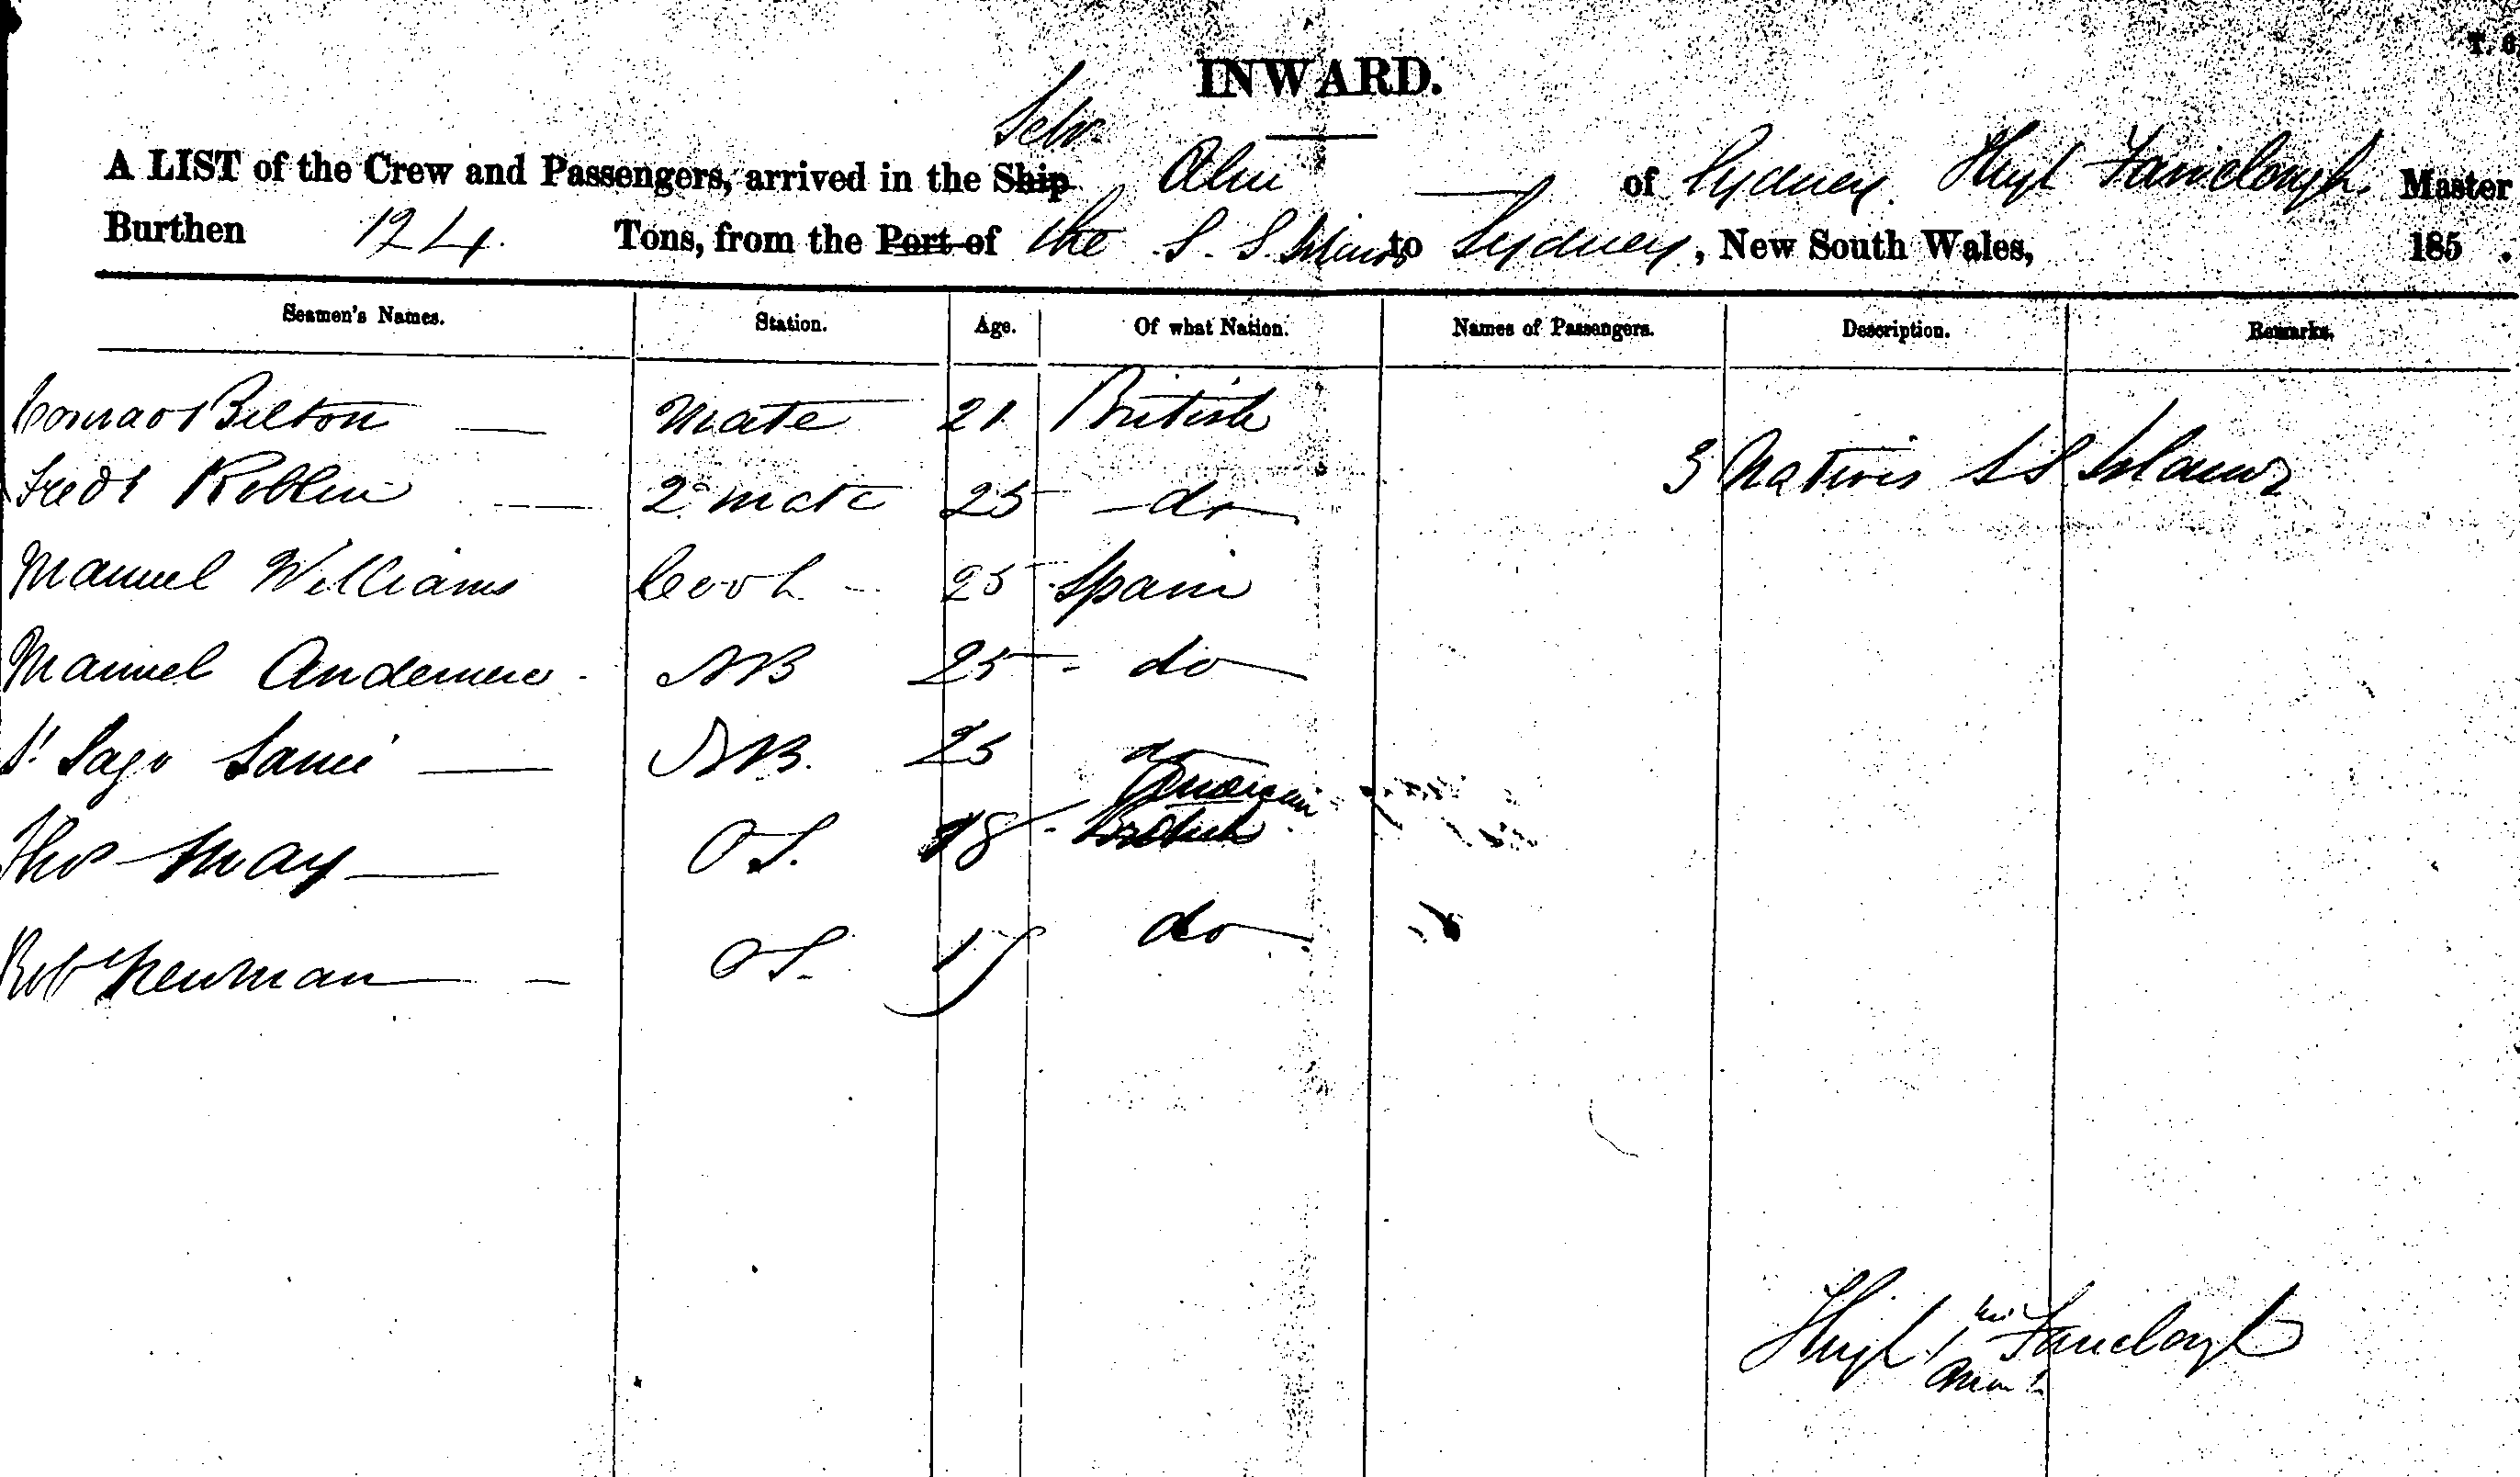 T. 6
INWARD.
Schr
A LIST of the Crew and Passengers, arrived in the Ship of Sydney Hugh Fairclough Master
Burthen 124 Tons, from the Port of the S. S. Islands to Sydney, New South Wales, 185 .
Seamen's Names. Station. Age. Of what Nation. Names of Passengers. Description. Remarks.
Conrad Bilton Mate 21 British
3 Natives S S Islands
Fredk 2d mate 25 do
Manuel Williams Cook 25 Spain
Manuel AB 25 do
St Iago AB. 25 do
American
Thos May OS. 18 British
Robt Newman OS. do
Hugh his Fairclough
mark